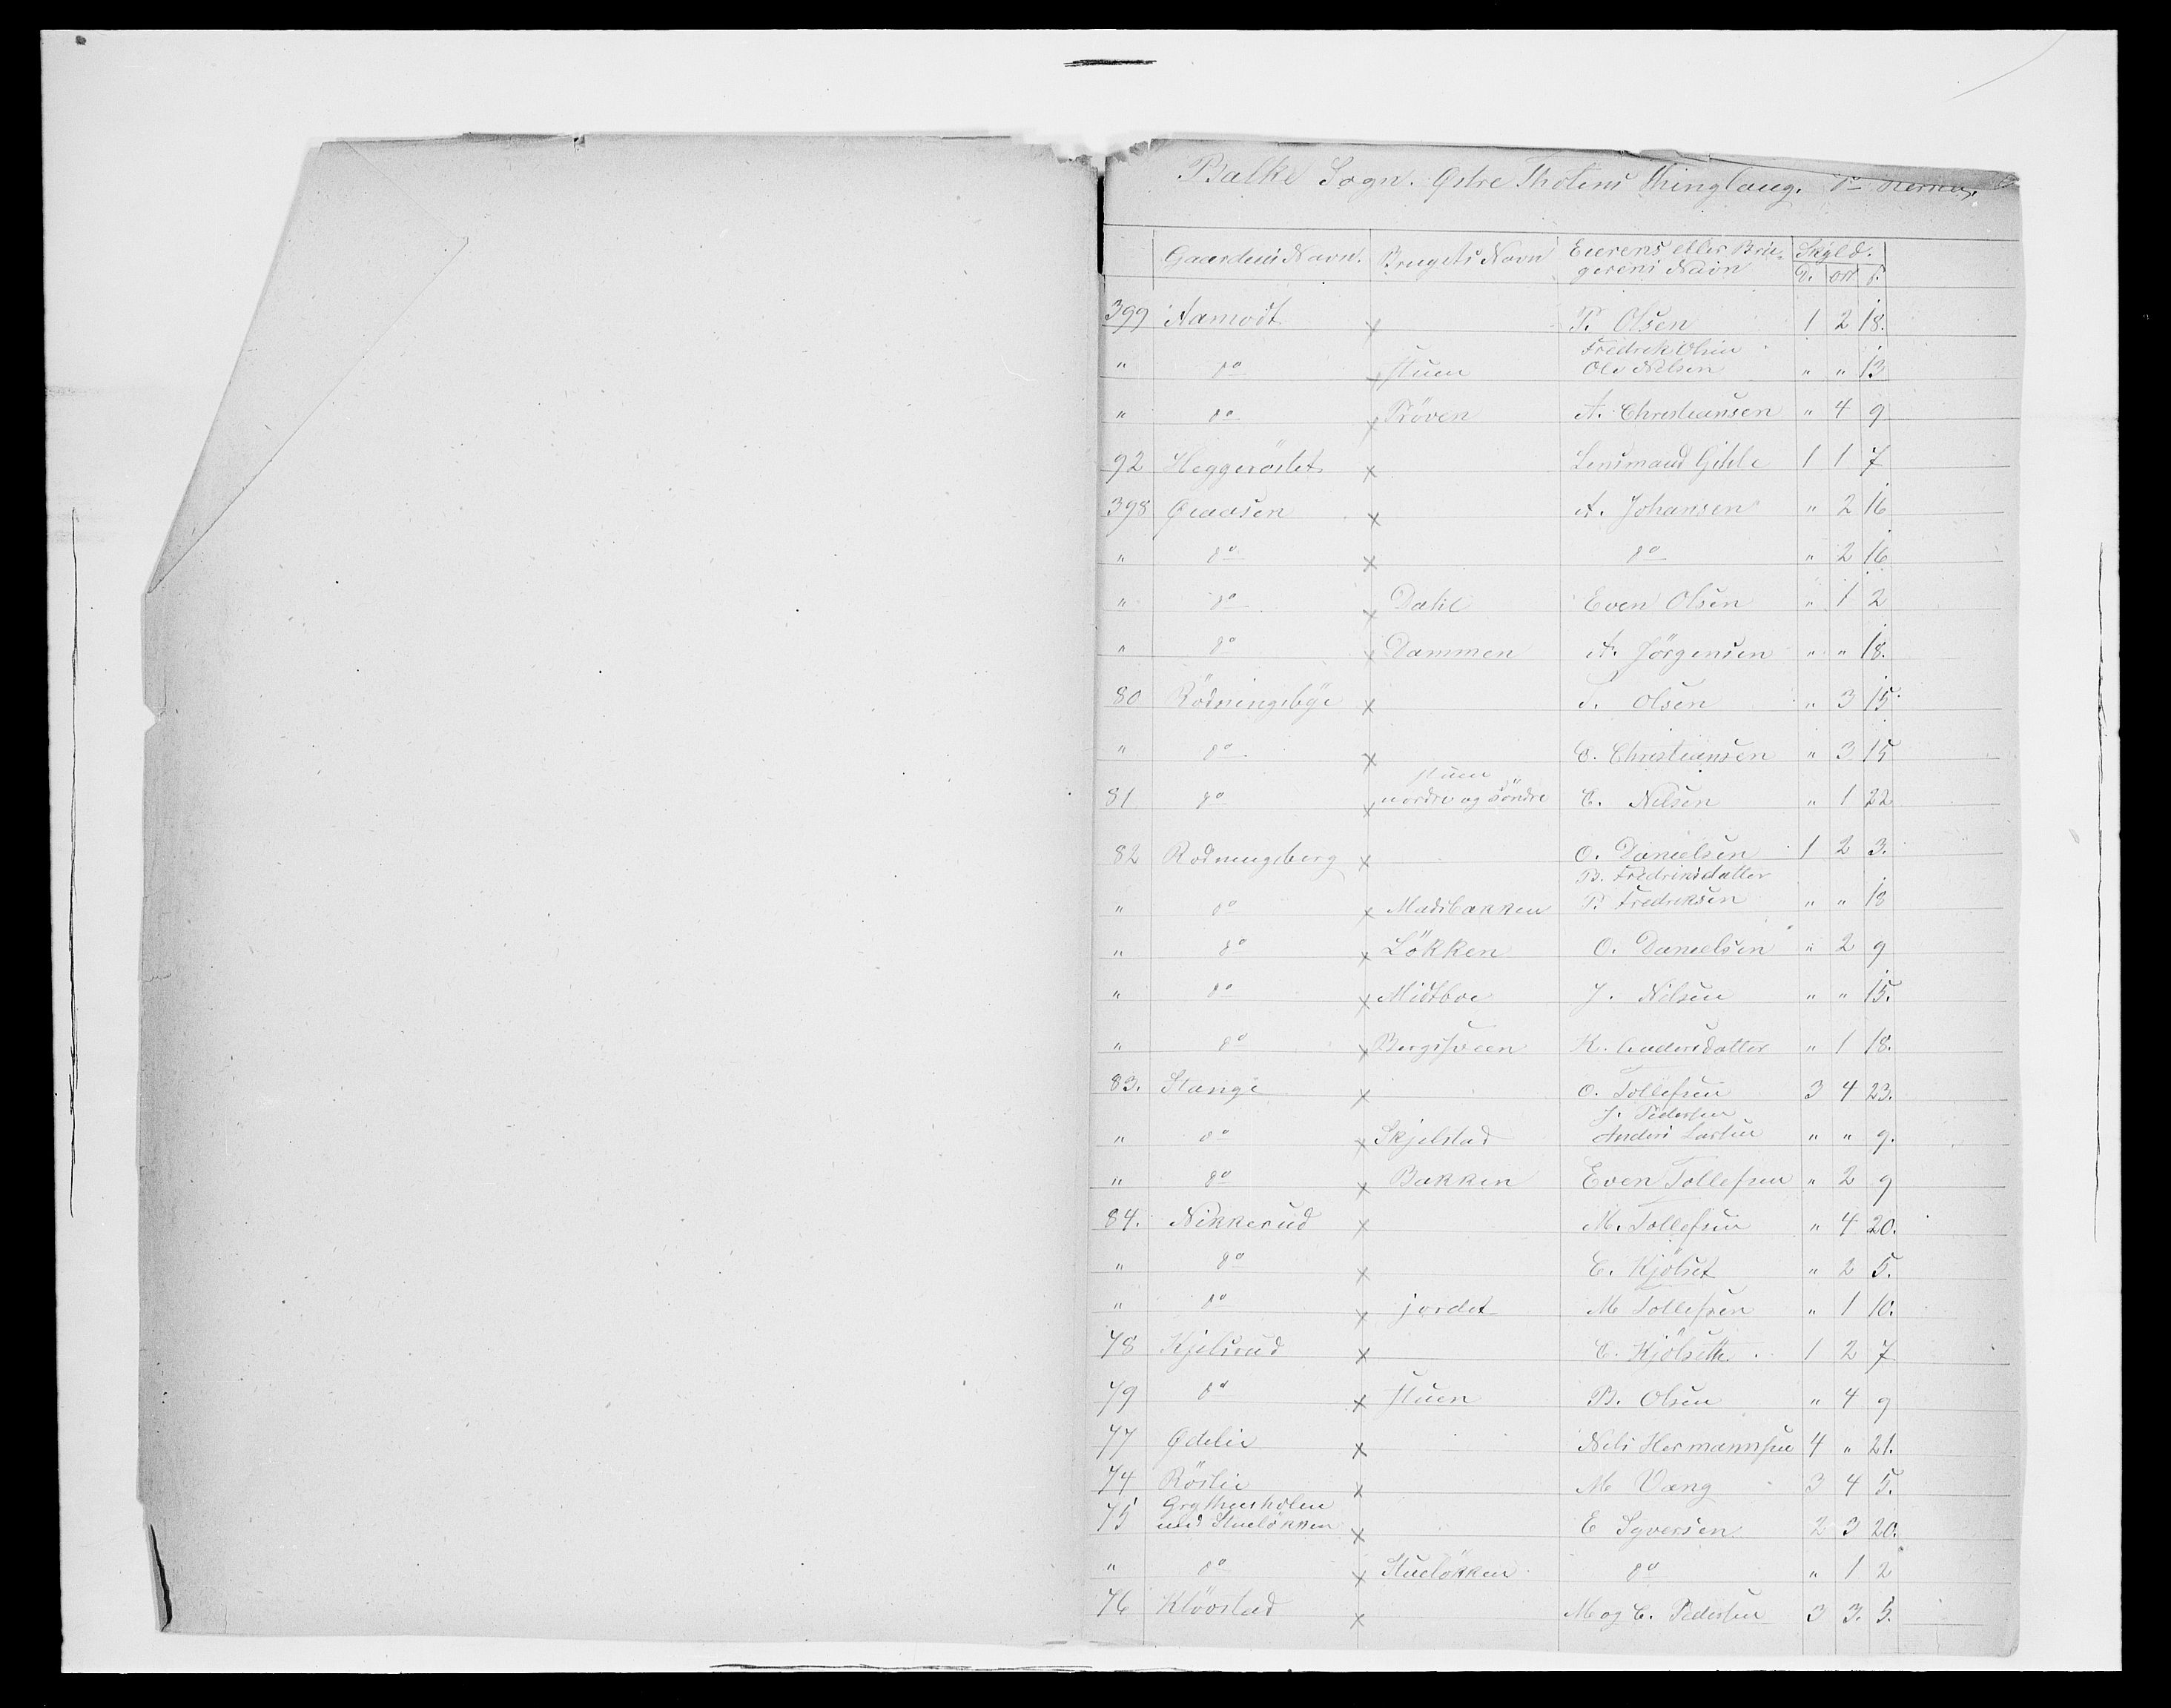 Balke Sogn. Østre Thotens Thinglaug.
Gaardens Navn. Brugets Navn Eierens eller Bru-
gerens Navn Skyld.
D. ort s.
399 Aamodt x P. Olsen 1 2 18.
Fredrik Olsen
" do x Stuen Ole Nilsen " " 13
" do x Pröven A. Christiansen " 4 9
92 Heggeröslet x Lensmand Gihle 1 1 7
398 Øiaasen x A. Johansen " 2 16
" do x do " 2 16
" do x Dahl Even Olsen " 1 2
" do x Dammen A. Jörgensen " " 18.
80 Rödningsbye x Olsen " 3 15
" do x C. Christiansen " 3 15
Stuen
81 do x nordre og söndre E. Nilsen " 1 22
82 Rödningsberg x O. Danielsen 1 2 3.
B. Fredriksdatter
" do x Madsbakken P. Fredriksen " " 18
" do x Lökken O. Danielsen " 2 9
" do x Midtboe J. Nilsen " " 15.
" do x Bergsveen K. Andersdatter " 1 18.
83. Stange x O. Tollefsen 3 4 23.
J. Pedersen
" do x Skjelstad Anders Larsen " " 9.
" do x Bakken Even Tollefsen " 2 9
84. Nikkerud x M. Tollefsen " 4 20.
" do x C. Kjölset " 2 5.
" do x jordet M Tollefsen " 1 10.
78 Kjelsrud x C. Kjölseth. 1 2 7
79 do x Stuen B. Olsen " 4 9
77 Ødelie x Nils Hermannsen 4 " 21.
74 Röslie x M Vang 3 4 5.
Grythgesholen
75 med Stuelökken x E Syversen 2 3 20.
" do x Stuelökken do " 1 2
76 Klövstad x M og C. Pedersen 3 3. 5.